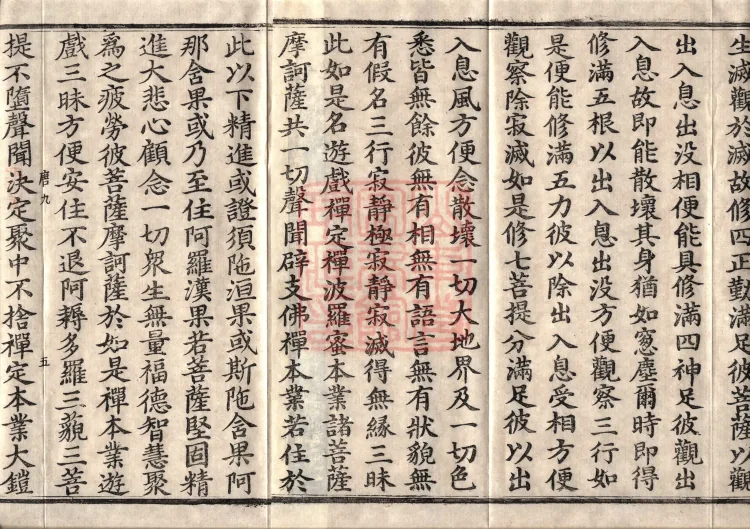 生滅觀於滅故修四正勤滿足彼菩薩以觀
出入息出没相便能具修滿四神足彼觀出
入息故即能散壞其身猶如窻塵爾時即得
修滿五根以出入息出没方便觀察三行如
是便能修滿五力彼以除出入息受相方便
觀察除寂滅如是修七菩提分滿足彼以出
入息風方便念散壞一切大地界及一切色
悉皆無餘彼無有相無有語言無有狀貌無
有假名三行寂靜極寂靜寂滅得無緣三昧
此如是名遊戲禪定禪波羅蜜本業諸菩薩
摩訶薩共一切聲聞辟支佛禪本業若住於
此以下精進或證須陁洹果或斯陁舍果阿
那舍果或乃至住阿羅漢果若菩薩堅固精
進大悲心顧念一切衆生無量福德智慧聚
爲之疲勞彼菩薩摩訶薩於如是禪本業遊
戲三昧方便安住不退阿耨多羅三藐三菩
唐九 五
提不墮聲聞決定聚中不捨禪定本業大鎧